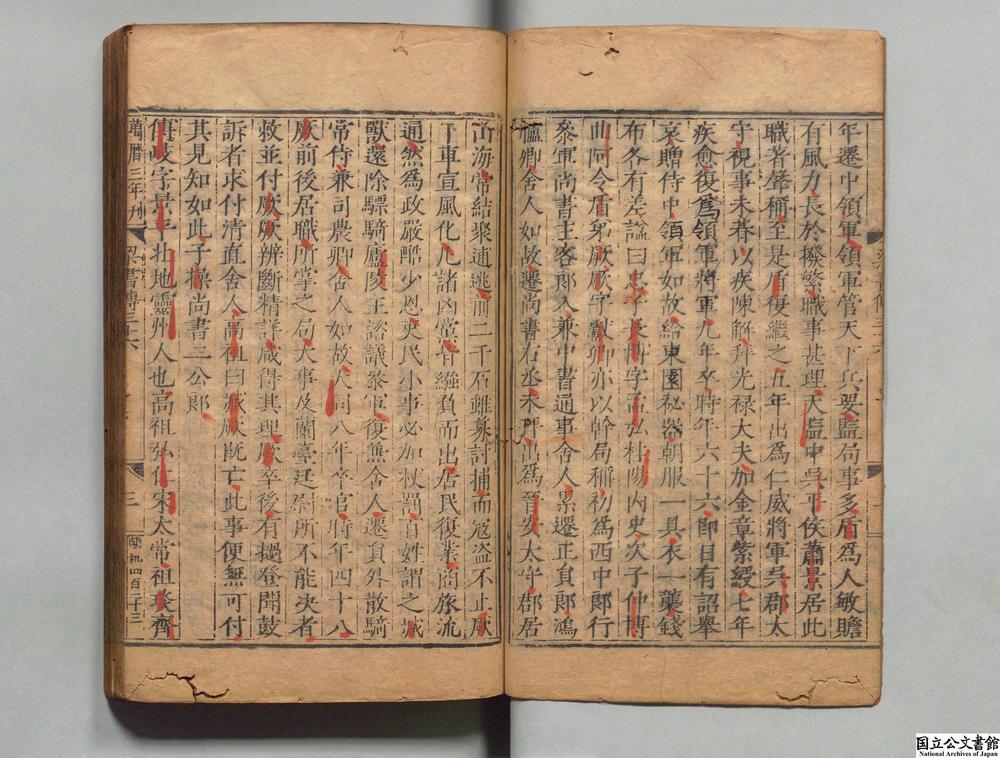 年遷中領軍領軍管天下兵要監局事多盾為人敏贍
有風力長於撥繁職事甚理天監中吳平侯蕭景居此
職著聲稱至是盾復繼之五年出為仁威將軍吳郡太
守視事未朞以疾陳解拜光祿大夫加金章紫綬七年
疾愈復爲領軍將軍九年卒時年六十六即日有詔舉
哀贈侍中領軍如故給東園祕器朝服一具衣一襲錢
布各有差謚曰忠子長博字孟弘桂陽内史次子仲博
曲阿令盾弟厥厥字獻卿亦以幹局稱初為西中郎行
參軍尚書主客郎入兼中書通事舍人累遷正員郎鴻
臚卿舍人如故遷尚書右丞未拜出爲晉安太守郡居
山海常結聚逋逃前二千石雖募討捕而寇盜不止厥
下車宣風化凡諸凶黨皆繈負而出居民復業商旅流
通然為政嚴酷少恩吏民小事必加杖罰百姓謂之臧
獸還除驃騎廬陵王諮議參軍復兼舍人遷員外散騎
常侍兼司農卿舍人如故大同八年卒官時年四十八
厥前後居職所掌之局大事及蘭臺廷尉所不能決者
救並付厥厥辨斷精詳咸得其理厥卒後有撾登聞鼓
訴者求付清直舍人高祖曰臧厥既亡此事便無可付
其見知如此子操尚書三公郎
傅岐字景平北地靈州人也高祖弘仁宋太常祖琰齊
萬曆三年刊
梁書傳三十六
三
四百二十三
国立公文書館
National Archives of Japan